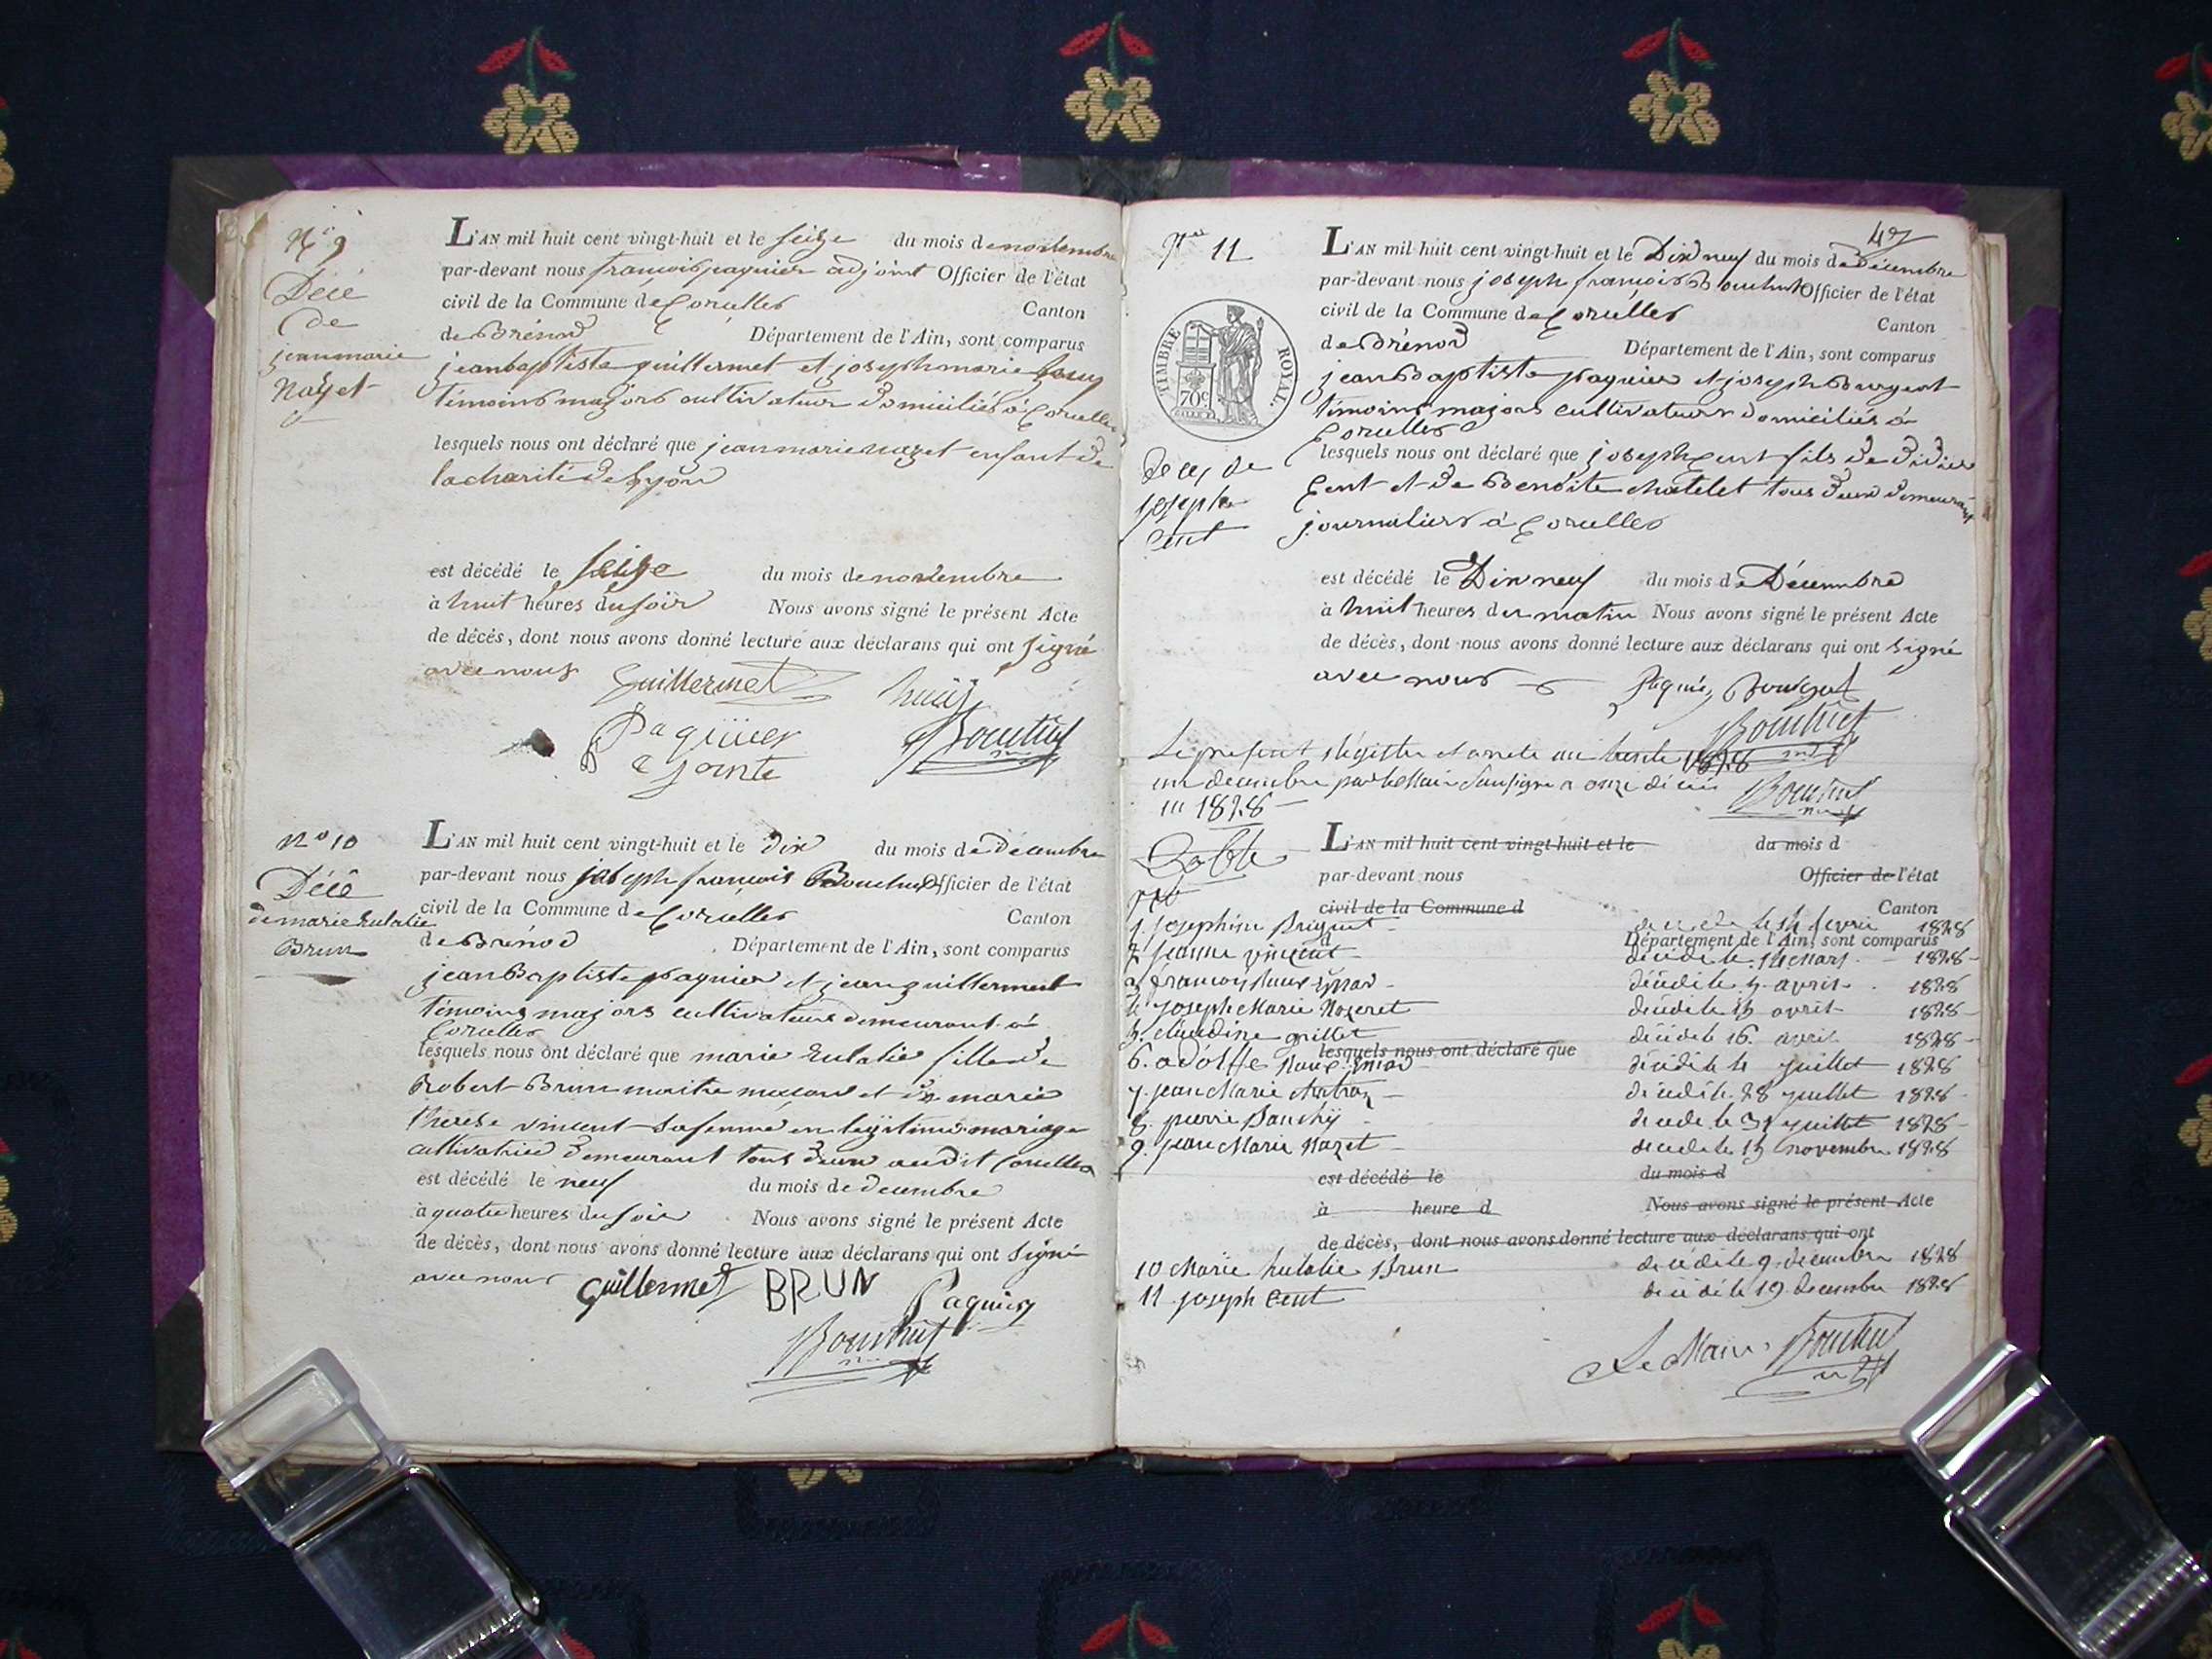 N° 9
Décé
de
jean marie
Nazet
L'AN mil huit cent vingt-huit et le seize du mois de novembre
par-devant nous francois paquier adjoint Officier de l'état
civil de la Commune de Corcelles Canton
de Brénod Département de l'Ain, sont comparus
jean baptiste guillermet et joseph marie
témoins majors cultivateur domiciliés à Corcelles
lesquels nous ont déclaré que jean marie nazet enfant de
la charité de Lyon
est décédé le seize du mois de novembre
à huit heures du soir Nous avons signé le présent Acte
de décès, dont nous avons donné lecture aux déclarans qui ont signé
avec nous Guillermet
Paquier
Bouchut
N° 10
Décé
de marie Eulalie
Brun
L'AN mil huit cent vingt-huit et le dix du mois de décembre
par-devant nous joseph francois Bouchut Officier de l'état
civil de la Commune de Corcelles Canton
de Brénod Département de l'Ain, sont comparus
jean Baptiste paquier et jean guillermet
témoins majors cultivateurs demeurant à
Corcelles
lesquels nous ont déclaré que marie Eulalie fille de
Robert Brun maitre macon et de marie
therese vincent sa femme en legitime mariage
cultivatrice demeurant tous deux audit Corcelles
est décédé le neuf du mois de decembre
à quatre heures du soir Nous avons signé le présent Acte
de décès, dont nous avons donné lecture aux déclarans qui ont signé
avec nous Guillermet BRUN Paquier
Bouchut
47
N° 11
L'AN mil huit cent vingt-huit et le Dix neuf du mois de Décembre
par-devant nous joseph francois Bouchut Officier de l'état
civil de la Commune de Corcelles Canton
de Brénod Département de l'Ain, sont comparus
TIMBRE ROYAL
70c
jean Baptiste paquier et joseph Bourgeot
témoins majors cultivateurs domiciliés à
Corcelles
Deces de
joseph
Cent
lesquels nous ont déclaré que joseph Cent fils de didier
Cent et de Benoite chatelet tous deux demeurant
journaliers à Corcelles
est décédé le Dix neuf du mois de Décembre
à huit heures du matin Nous avons signé le présent Acte
de décès, dont nous avons donné lecture aux déclarans qui ont signé
avec nous Paquier Bourgeot
Bouchut
Le present Registre et arreté au trente 1828
un decembre par le Maire Soussigné a onze décès
1828 Bouchut
Table
L'AN mil huit cent vingt-huit et le du mois d
par-devant nous Officier de l'état
civil de la Commune d Canton
1. josephine Briguet 1828
Département de l'Ain, sont comparus
2. jeanne vincent décédé le mars 1828
3. francois décédé le avril 1828
4. joseph Marie Nazeret décédé le avril 1828
5. claudine grillet décédé le 16. avril 1828
lesquels nous ont déclaré que
6. adolffe décédé le juillet 1828
7. jean Marie décédé le 28 juillet 1828
8. pierre décédé le juillet 1828
9. jean Marie Nazet décédé le novembre 1828
est décédé le du mois d
à heure d Nous avons signé le présent Acte
de décès, dont nous avons donné lecture aux déclarans qui ont
10 Marie Eulalie Brun décédé le 9. decembre 1828
11. joseph Cent décédé le 19 decembre 1828
Le Maire Bouchut